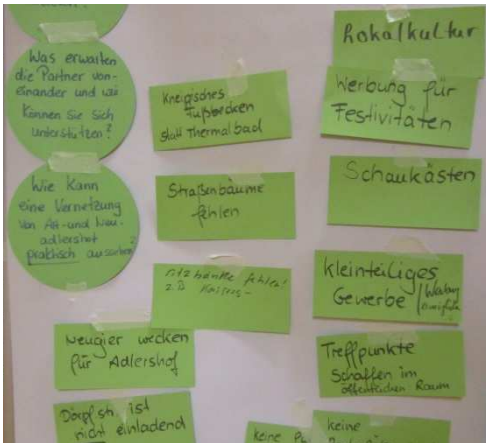 Was erwarten
die Partner von-
einander und wie
können sie sich
unterstützen?
Wie kann
eine Vernetzung
von Alt- und Neu-
adlershof
praktisch aussehen?
Neugier wecken
für Adlershof
Dörpfstr. ist
nicht einladend
Kneippsches
Fußbecken
statt Thermalbad
Straßenbäume
fehlen
Sitzbänke fehlen!
z.B.
keine
Lokalkultur
Werbung für
Festivitäten
Schaukästen
kleinteiliges
Gewerbe / Werbung
Treffpunkte
Schaffen im
öffentlichen Raum
keine